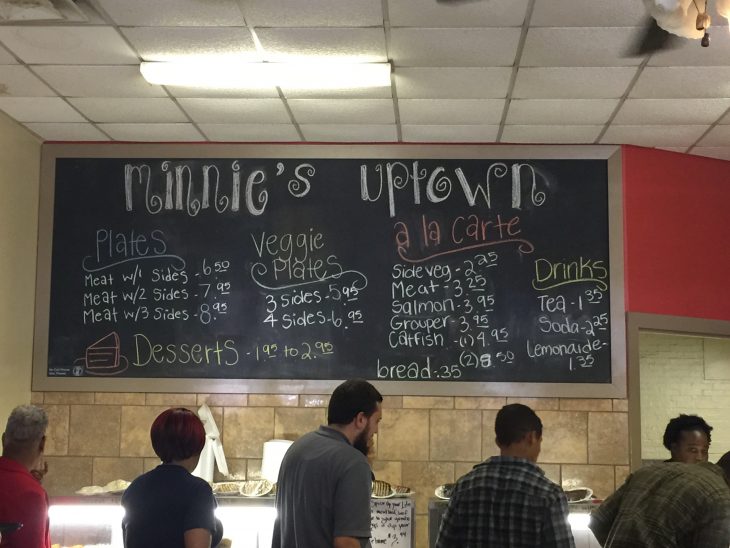 minnie's uptown
Plates
Meat w/1 Sides - 6.50
Meat w/2 Sides - 7.95
Meat w/3 Sides - 8.95
Veggie
Plates
3 Sides - 5.95
4 Sides - 6.95
a la carte
Side veg - 2.25
Meat - 3.25
Salmon - 3.95
Grouper - 3.95
Catfish - (1) 4.95
(2) 8.50
bread - .35
Drinks
Tea - 1.35
Soda - 2.25
Lemonaide -
1.35
Desserts - 1.95 to 2.95